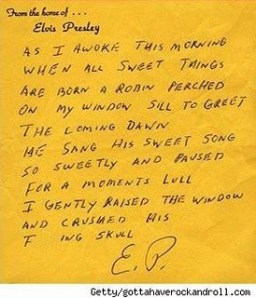 From the home of . . .
Elvis Presley
AS I AWOKE THIS MORNING
WHEN ALL SWEET THINGS
ARE BORN A ROBIN PERCHED
ON MY WINDOW SILL TO GREET
THE COMING DAWN
HE SANG HIS SWEET SONG
SO SWEETLY AND PAUSED
FOR A MOMENTS LULL
I GENTLY RAISED THE WINDOW
AND CRUSHED HIS
F ING SKULL
E.P.
Getty/gottahaverockandroll.com